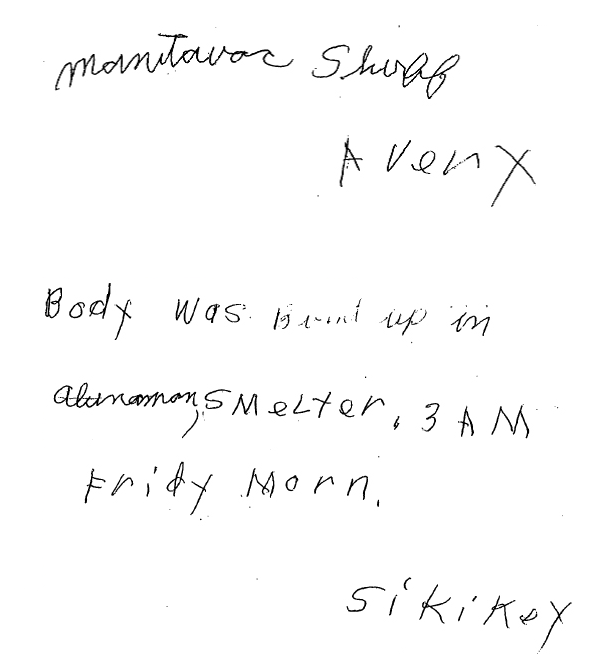 Manitavoc Shuff
Aveny
Body was Burnt up in
alunamon, SMeLter, 3 AM
Fridy Morn.
SikiKey